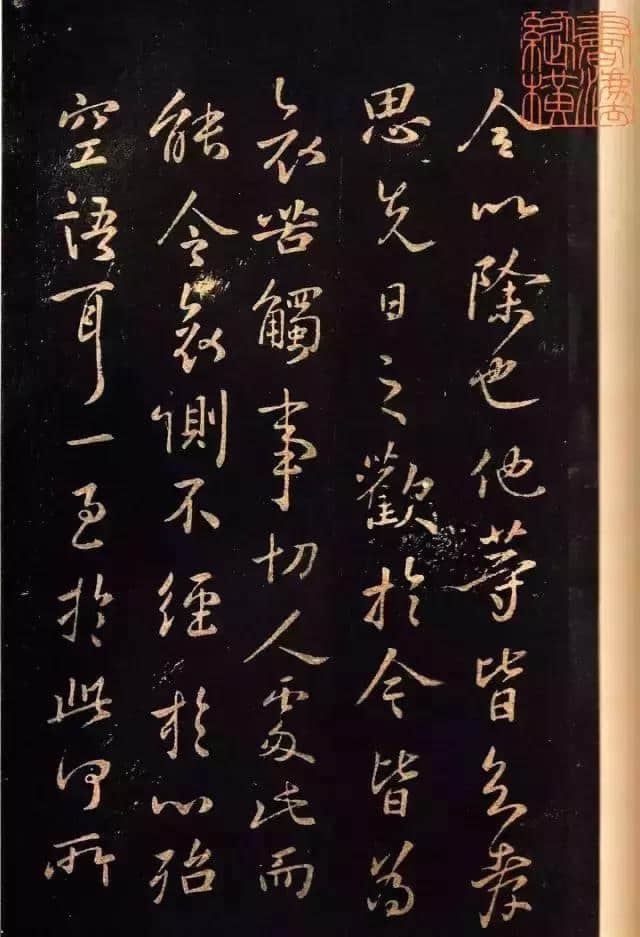 書法
縱橫
今以除也他等皆孝
思先日之歡於今皆為
哀苦觸事切人處此而
能令哀惻不經於心殆
空語耳一至於此何所